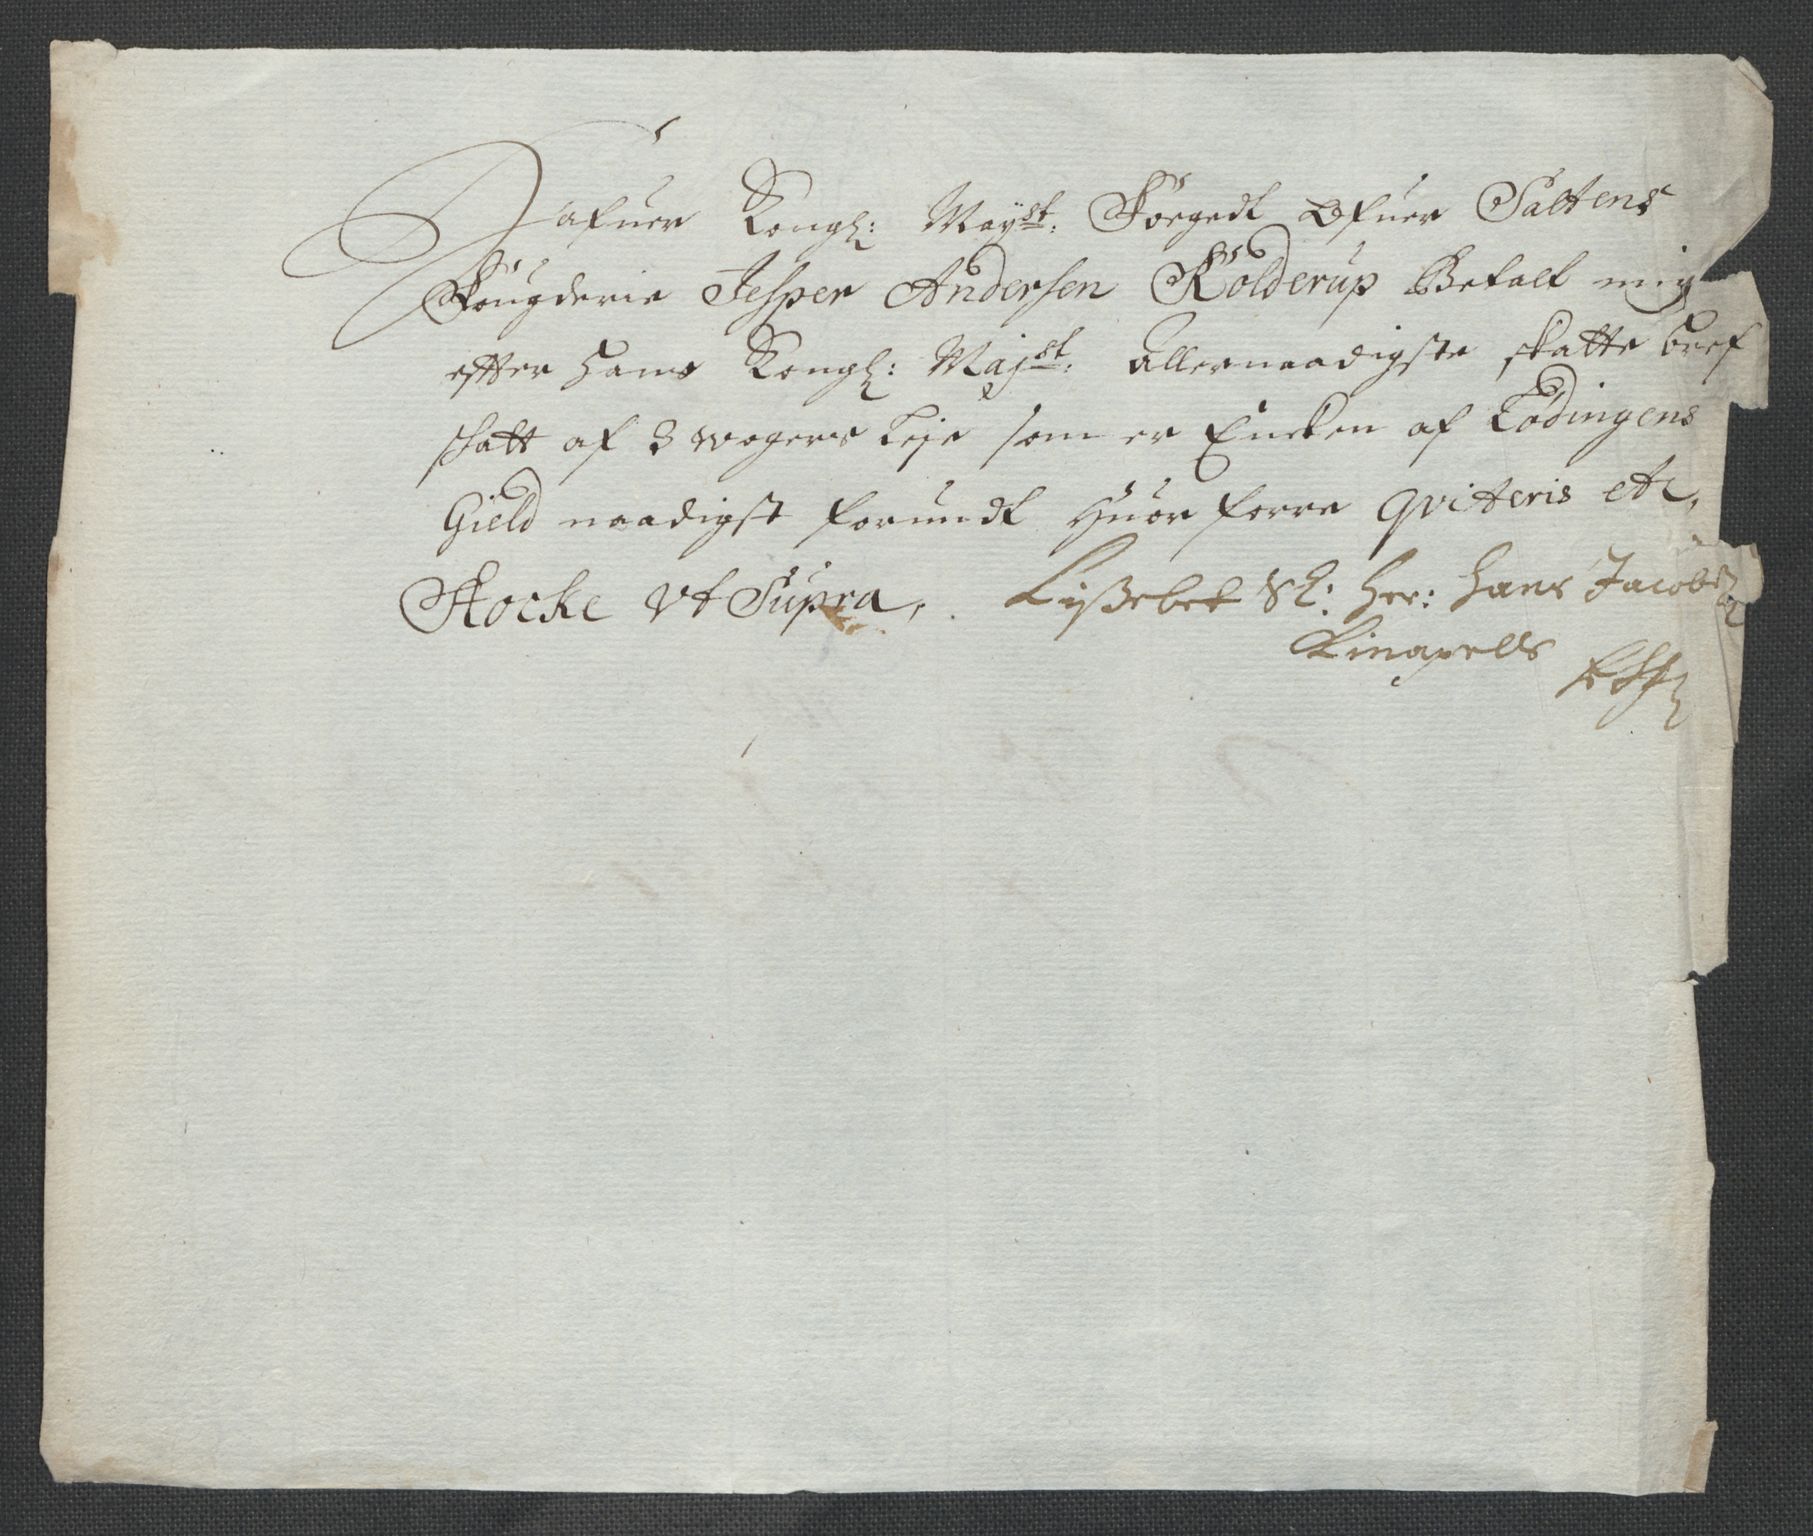 Hafuer Kongl: Mayst: Foegedt Ofuer Saltens
Fougderie Jesper Andersen Kolderup Betalt mig
effter Hans Kongl: Majst: allernaadigste skatte bref
skatt af 3 wogers Leje som er Encken af Lödingens
Gield naadigst forundt Huor forre qviteris etc,
Stocke Vt Supra,. Lißebet Sl: Her: Hans Jacobsz